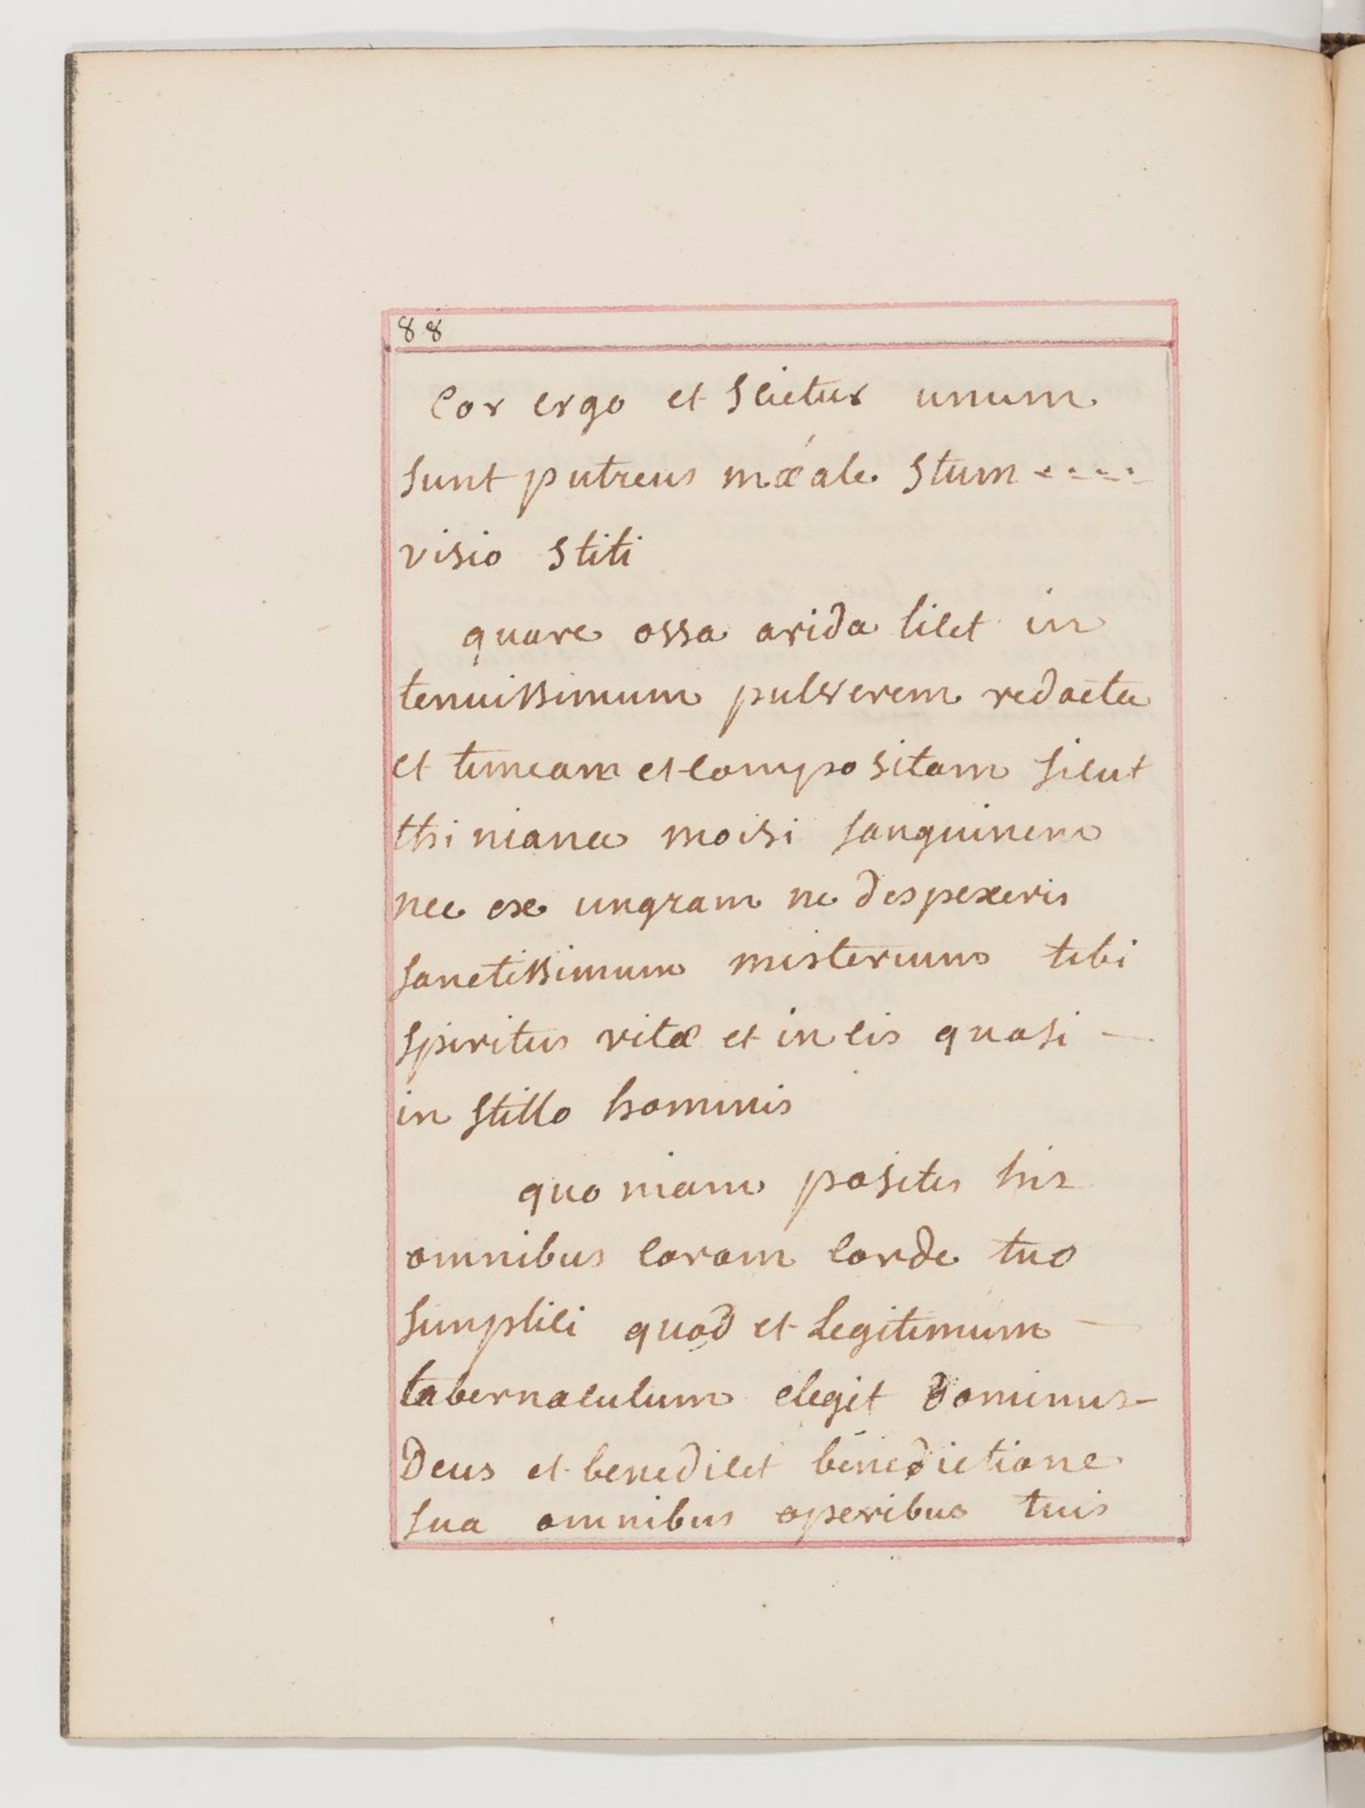 88
Cor ergo et scietur unum
sunt putreus mæ´ale stum - - - -
visio stiti
quare ossa arida licet in
tenuissimum pulverem redacta
et timeam et compositam sicut
thi niana moisi sanguinem
nec ex ungram ne despexeris
sanctissimum misterium tibi
spiritus vitæ et in eis quasi —
in stillo hominis
quo niam positis his
omnibus coram corde tuo
simplici quod et Legitimum —
tabernaculum elegit Dominus —
Deus et benedicet bénédictione
sua omnibus operibus tuis